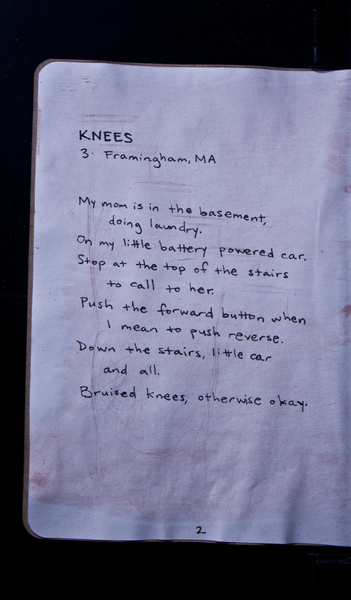 KNEES
3. Framingham, MA
My mom is in the basement,
doing laundry.
On my little battery powered car.
Stop at the top of the stairs
to call to her.
Push the forward button when
I mean to push reverse.
Down the stairs, little car
and all.
Bruised knees, otherwise okay.
2